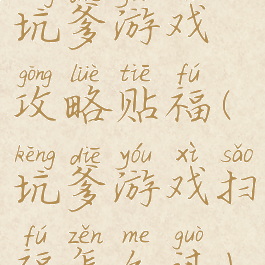 坑爹游戏
gōng lüè tiē fú
攻略贴福(
kēng diē yóu xì sǎo
坑爹游戏扫
fú zěn me guò
福怎么过)